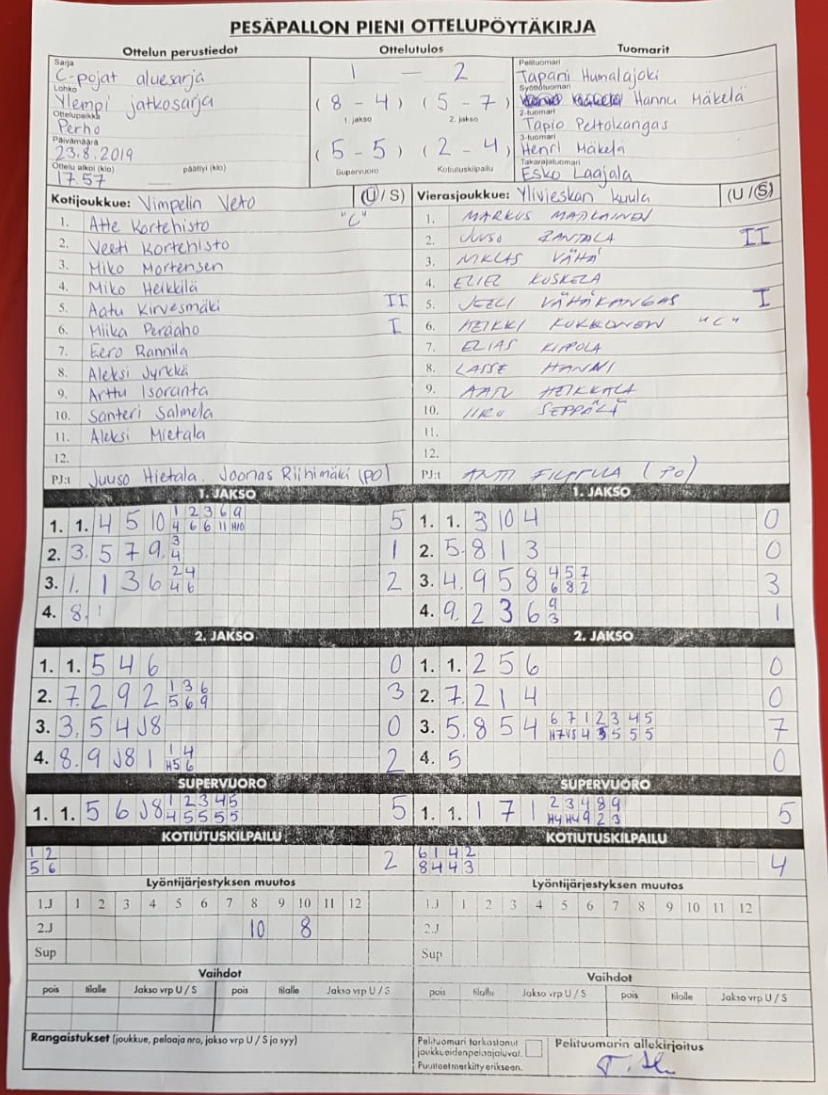 PESÄPALLON PIENI OTTELUPÖYTÄKIRJA
Ottelun perustiedot Ottelutulos Tuomarit
Sarja C-pojat aluesarja 1 — 2 Pelituomari Tapani Humalajoki
Lohko Ylempi jatkosarja (8-4) (5-7) Syöttötuomari Hannu Mäkelä
1. jakso 2. jakso
Ottelupaikka Perho 2-tuomari Tapio Peltokangas
Päivämäärä 23.8.2019 (5-5) (2-4) 3-tuomari Henri Mäkelä
Ottelu alkoi (klo) 17.57 päättyi (klo) Supervuoro Kotiutuskilpailu Takarajatuomari Esko Laajala
Kotijoukkue: Vimpelin Veto (U/S) Vierasjoukkue: Ylivieskan Kuula (U/S)
1. Atte Kortehisto "C" 1. MARKUS
2. Veeti Kortehisto 2. JUUSO RANTALA II
3. Miko Mortensen 3. NIKLAS VÄHÄ
4. Miko Heikkilä 4. ELIEL KOSKELA
5. Aatu Kirvesmäki II 5. VÄHÄKANGAS I
6. Miika Peräaho I 6. HEIKKI KUKKONEN "C"
7. Eero Rannila 7. ELIAS KIPPOLA
8. Aleksi Jyrkkä 8. LASSE HANNI
9. Arttu Isoranta 9. AATU HEIKKALA
10. Santeri Salmela 10. IIRO SEPPÄLÄ
11. Aleksi Mietala 11.
12. 12.
PJ:t Juuso Hietala. Joonas Riihimäki (PO) PJ:t ANTTI FILPPULA (PO)
1. JAKSO 1. JAKSO
1 2 3 6 9
1. 1. 4 5 10 4 6 6 11 H10 5 1. 1. 3 10 4 0
3
2. 3. 5 7 9. 4 1 2. 5. 8 1 3 0
2 4 4 5 7
3. 1. 1 3 6 4 6 2 3. 4. 9 5 8 6 8 2 3
9
4. 8. 1 4. 9. 2 3 6 3 1
2. JAKSO 2. JAKSO
1. 1. 5 4 6 0 1. 1. 2 5 6 0
1 3 6
2. 7. 2 9 2 5 6 9 3 2. 7. 2 1 4 0
6 7 1 2 3 4 5
3. 3. 5 4 J8 0 3. 5. 8 5 4 H7 V5 4 5 5 5 5 7
1 4
4. 8. 9 J8 1 H5 6 2 4. 5 0
SUPERVUORO SUPERVUORO
1 2 3 4 5 2 3 4 8 9
1. 1. 5 6 J8 4 5 5 5 5 5 1. 1. 1 7 1 H4 H4 9 2 3 5
KOTIUTUSKILPAILU KOTIUTUSKILPAILU
1 2 6 1 4 2
5 6 2 8 4 4 3 4
Lyöntijärjestyksen muutos Lyöntijärjestyksen muutos
1.J 1 2 3 4 5 6 7 8 9 10 11 12 1.J 1 2 3 4 5 6 7 8 9 10 11 12
2.J 10 8 2.J
Sup Sup
Vaihdot Vaihdot
pois tilalle Jakso vrp U / S pois tilalle Jakso vrp U / S pois tilalle Jakso vrp U / S pois tilalle Jakso vrp U / S
Rangaistukset (joukkue, pelaaja nro, jakso vrp U / S ja syy) Pelituomari tarkastanut Pelituomarin allekirjoitus
joukkueiden pelaajaluvat.
Puutteet merkitty erikseen.